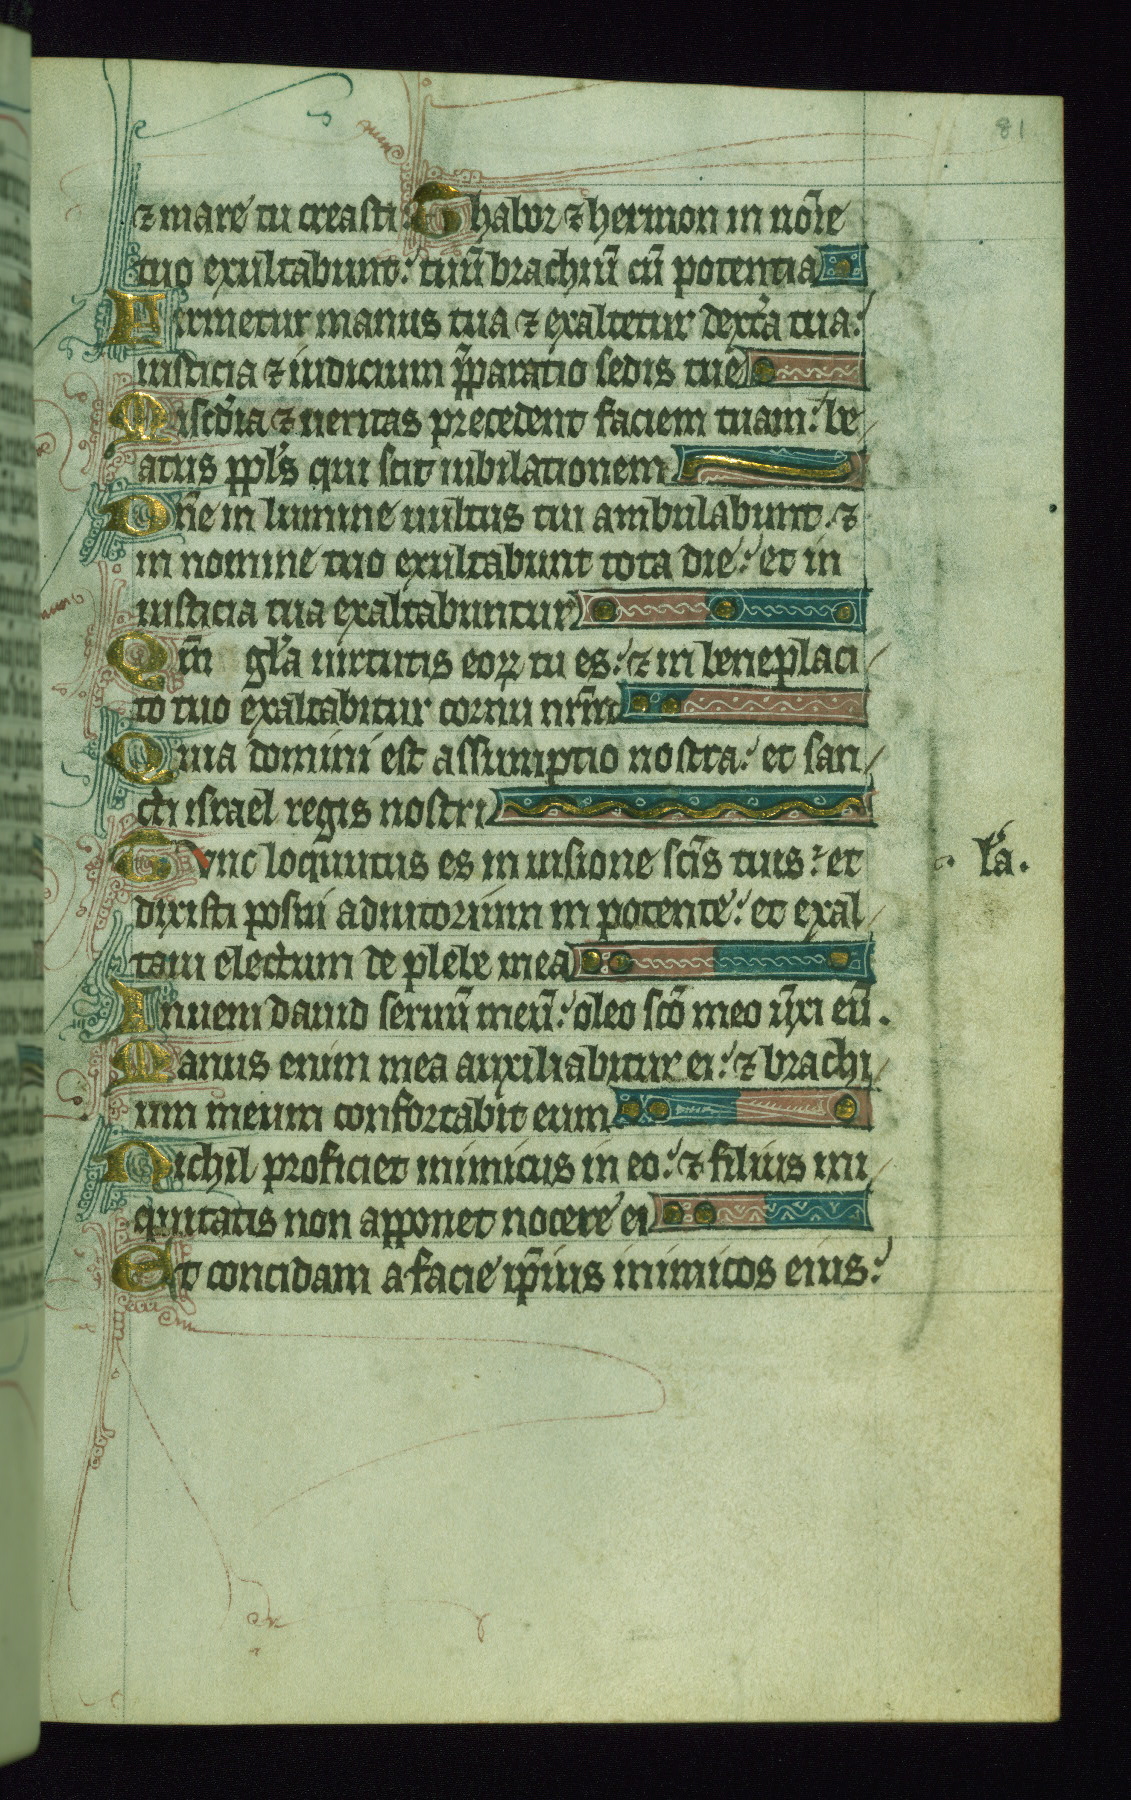 81
⁊ mare tu creasti: Thabor ⁊ hermon in no͂ie
tuo exultabunt: tuu͂ brachiu͂ cu͂ potentia
Firmetur manus tua ⁊ exaltetur dext͛a tua:
iusticia ⁊ iudicium p͂paratio sedis tue
Misc͛dia ⁊ ueritas precedent faciem tuam: be
atus ppl͛s qui scit iubilationem
Dn͂e in lumine uultus tui ambulabunt: ⁊
in nomine tuo exultabunt tota die: et in
iusticia tua exaltabuntur
Qm͂ gl͛a uirtutis eoꝝ tu es: ⁊ in beneplaci
to tuo exaltabitur cornu nr͂m
Quia domini est assumptio nostra: et san
cti israel regis nostri
Tunc loquutus es in uisione sc͂is tuis: et
dixisti posui adiutorium in potente: et exal
taui electum de plebe mea
Inueni dauid seruu͂ meu͂: oleo sc͂o meo u͂xi eu͂.
Manus enim mea auxiliabitur ei: ⁊ brachi
um meum confortabit eum
Nichil proficiet inimicus in eo: ⁊ filius ini
quitatis non apponet nocere ei
Et concidam a facie ip͂ius inimicos eius: